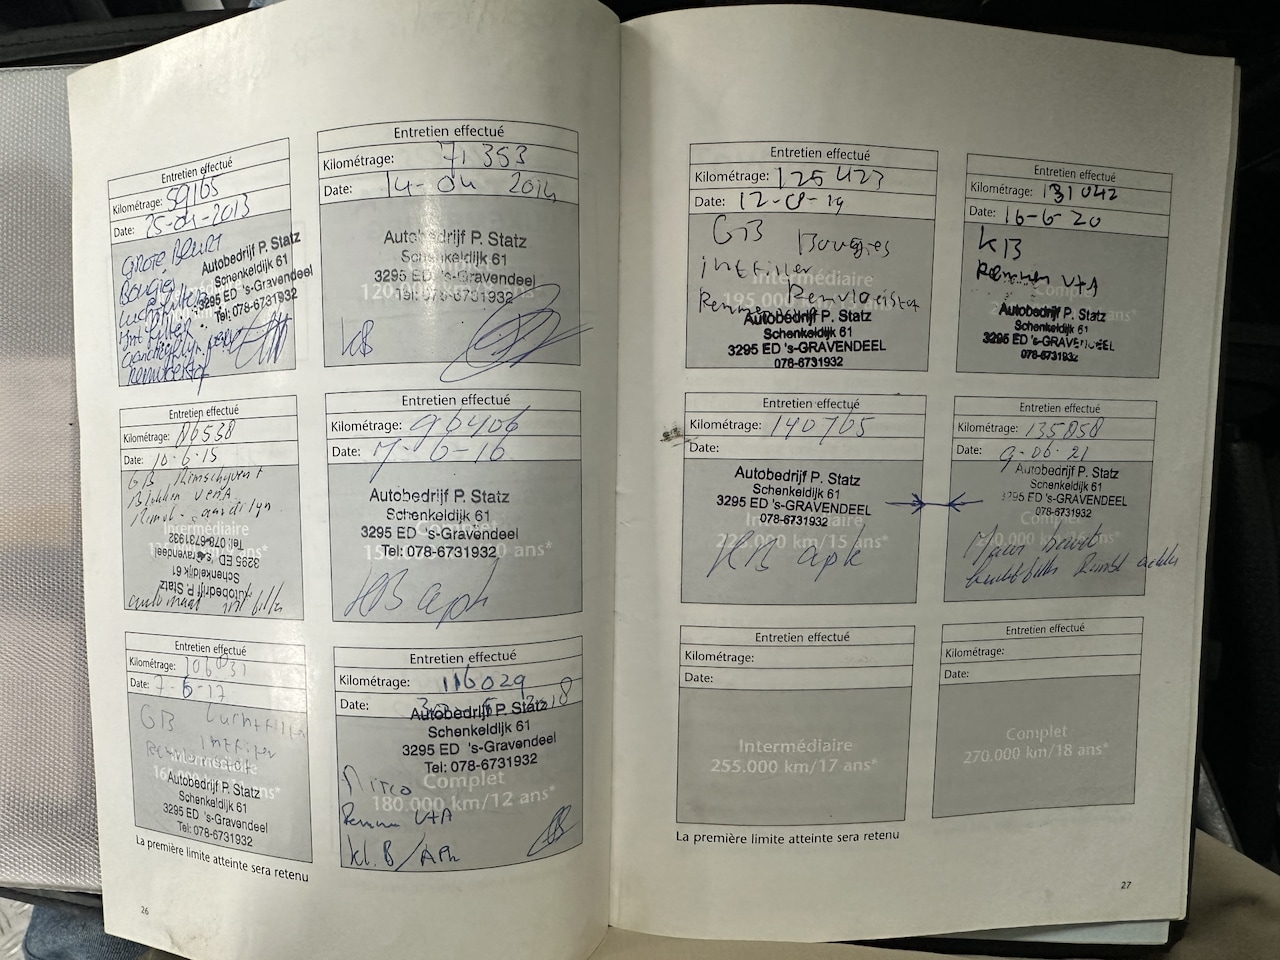 Entretien effectué
Kilométrage: 59165
Date: 25-04-2013
GROTE BEURT
Bougies
Luchtfilter
Int filter
Autobedrijf P. Statz
Schenkeldijk 61
3295 ED 's-Gravendeel
Tel: 078-6731932
Entretien effectué
Kilométrage: 71353
Date: 14-04 2014
Autobedrijf P. Statz
Schenkeldijk 61
3295 ED 's-Gravendeel
Tel: 078-6731932
120.000
KB
Entretien effectué
Kilométrage: 86538
Date: 10-6-15
GB Remschijven +
Blokken V en A
Intermédiaire
Autobedrijf P. Statz
Schenkeldijk 61
3295 ED 's-Gravendeel
Tel: 078-6731932
automaat int filter
Entretien effectué
Kilométrage: 96406
Date: 7-6-16
Autobedrijf P. Statz
Schenkeldijk 61
3295 ED 's-Gravendeel
Tel: 078-6731932
Complet
KB apk
Entretien effectué
Kilométrage:
Date: 7-6-17
GB Luchtfilter
Intfilter
Autobedrijf P. Statz
Schenkeldijk 61
3295 ED 's-Gravendeel
Tel: 078-6731932
Entretien effectué
Kilométrage: 116029
Date:
Autobedrijf P. Statz
Schenkeldijk 61
3295 ED 's-Gravendeel
Tel: 078-6731932
Complet
180.000 km/12 ans*
Remmen V+A
kl. B/APk
La première limite atteinte sera retenu
26
Entretien effectué
Kilométrage: 125423
Date: 12-8-19
GB Bougies
intfilter
Intermédiaire
195.000
Remmen Remvloeistof
Autobedrijf P. Statz
Schenkeldijk 61
3295 ED 's-GRAVENDEEL
078-6731932
Entretien effectué
Kilométrage: 131042
Date: 16-6-20
KB
Remmen V+A
Autobedrijf P. Statz
Schenkeldijk 61
3295 ED 's-GRAVENDEEL
078-6731932
Entretien effectué
Kilométrage: 140765
Date:
Autobedrijf P. Statz
Schenkeldijk 61
3295 ED 's-GRAVENDEEL
078-6731932
Intermédiaire
225.000 km/15 ans*
KB apk
Entretien effectué
Kilométrage: 135858
Date: 9-06-21
Autobedrijf P. Statz
Schenkeldijk 61
3295 ED 's-GRAVENDEEL
078-6731932
Complet
Entretien effectué
Kilométrage:
Date:
Intermédiaire
255.000 km/17 ans*
Entretien effectué
Kilométrage:
Date:
Complet
270.000 km/18 ans*
La première limite atteinte sera retenu
27